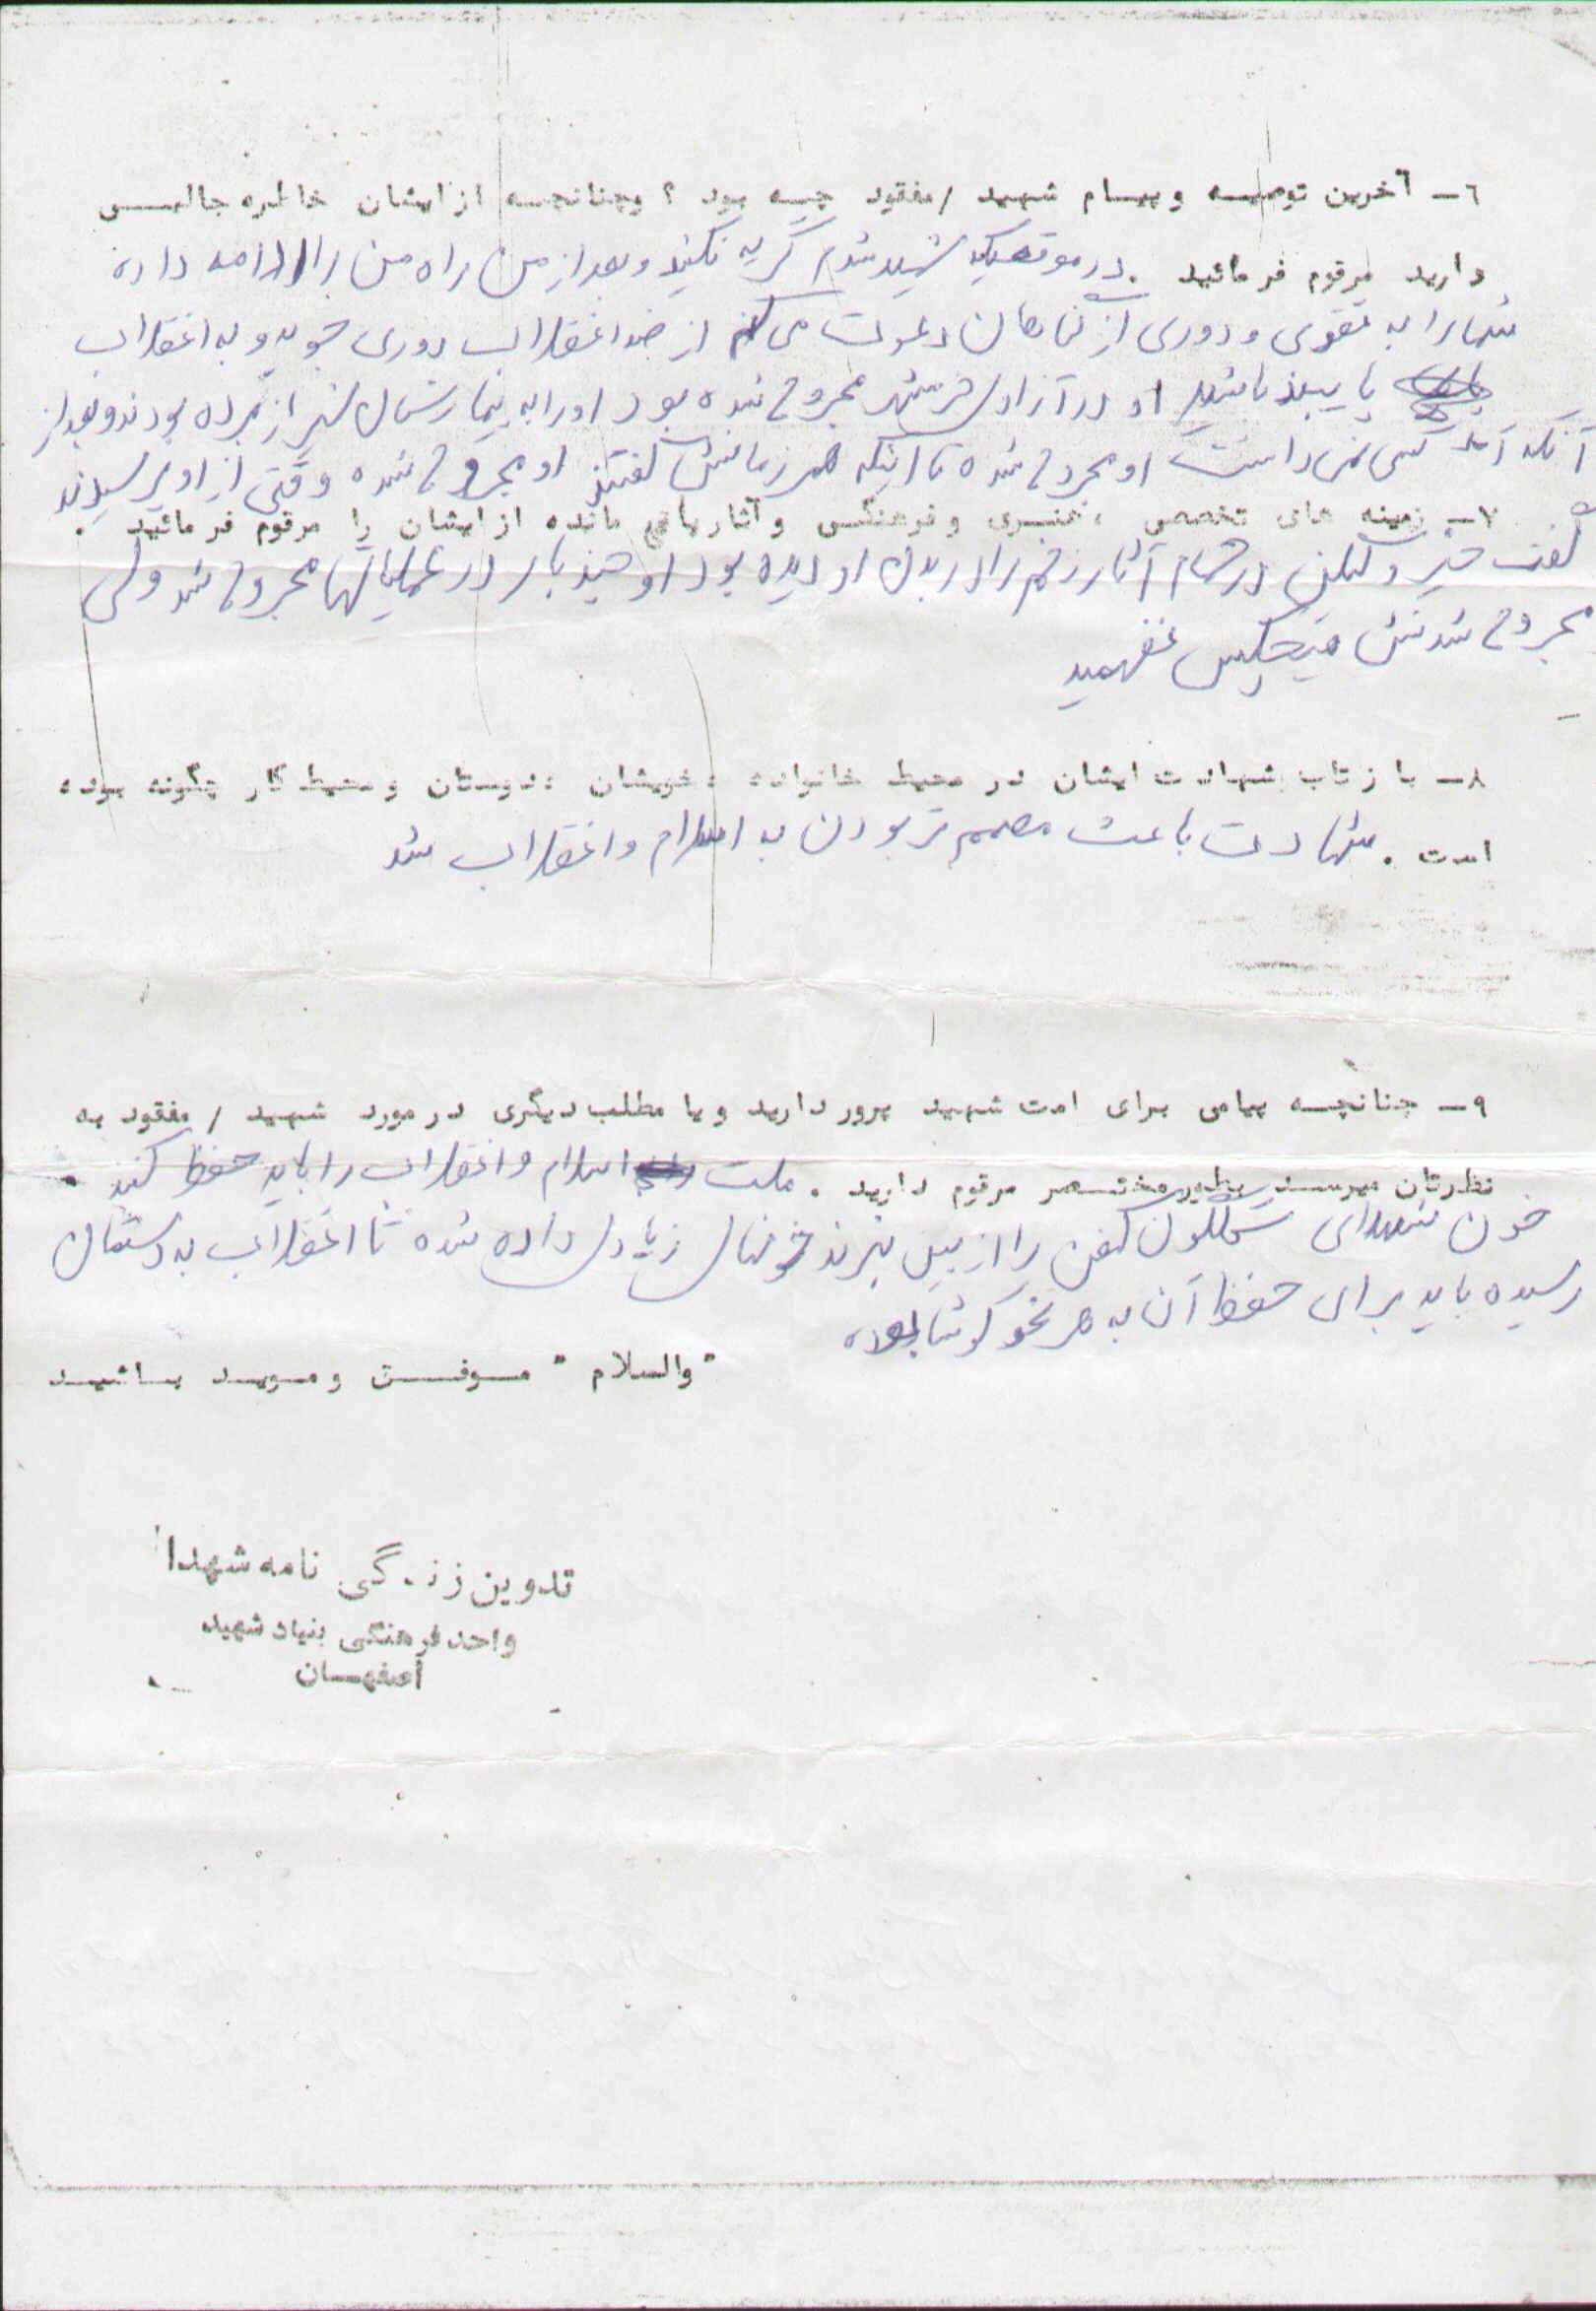 ۶ـ آخرین توصیه و پیام شهید /مفقود چه بود ؟ وچنانچه از ایشان خاطره جالبی
دارید مرقوم فرمائید . در موقعیکه شهید شدم گریه نکنید و بعد از من راه من را ادامه داده
شما را به تقوی و دوری از گناهان دعوت می کنم از ضد انقلاب دوری جوید و به انقلاب
پایبند باشید او در آزادی خرمشهر مجروح شده بود او را به بیمارستان شیراز برده بودند و بعد از
آنکه آمد کسی نمی دانست او مجروح شده تا اینکه همرزمانش گفتند او مجروح شده وقتی از او پرسیدند
۷ـ زمینه های تخصصی ، هنری و فرهنگی و آثار باقی مانده از ایشان را مرقوم فرمائید .
گفت خیر ولیکن در حمام آثار زخم را در بدن او دیده بود او چند بار در عملیاتها مجروح شد ولی
مجروح شدنش هیچکس نفهمید
۸ـ بازتاب شهادت ایشان در محیط خانواده ، خویشان ، دوستان و محیط کار چگونه بوده
است . شهادت باعث مصمم تر بودن به اسلام و انقلاب شد
۹ـ چنانچه پیامی برای امت شهید پرور دارید و یا مطلب دیگری در مورد شهید / مفقود به
نظرتان میرسد بطور مختصر مرقوم دارید . ملت اسلام و انقلاب را باید حفظ کنید .
خون شهدای گلگون کفن را از بین نبرند خونهای زیادی داده شده تا انقلاب به دستمان
رسیده باید برای حفظ آن به هر نحو کوشا بوده
"والسلام" موفق و موید باشید
تدوین زندگی نامه شهدا
واحد فرهنگی بنیاد شهید
اصفهان